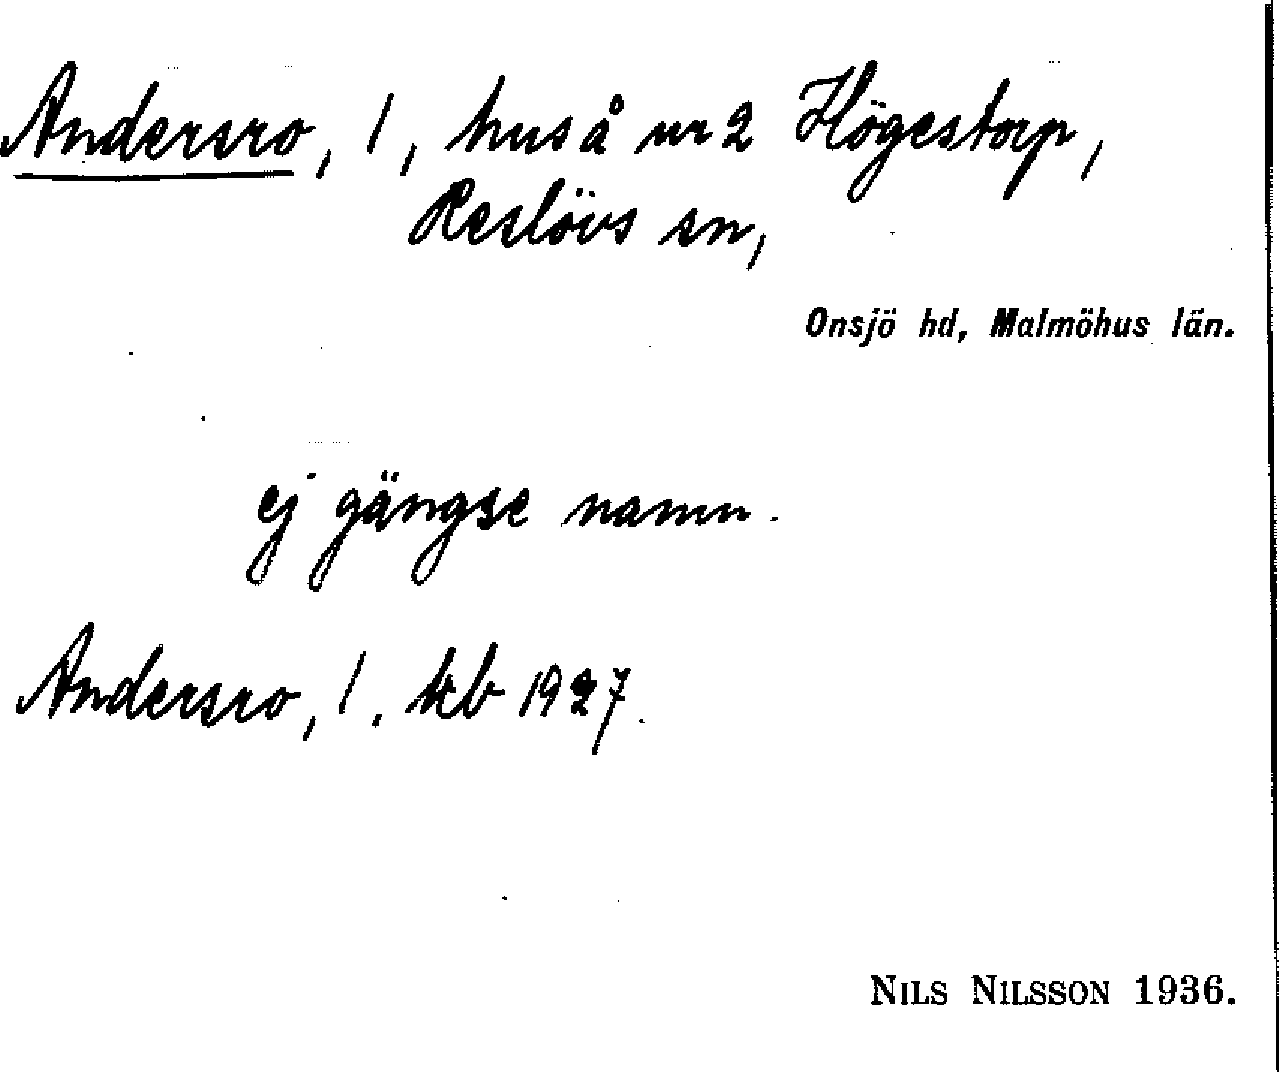 Andersro, 1, hus å nr 2 Högestorp,
Reslövs sn,
Onsjö hd, Malmöhus län.
ej gängse namn.
Andersro, 1. kb 1927.
NILS NILSSON 1936.